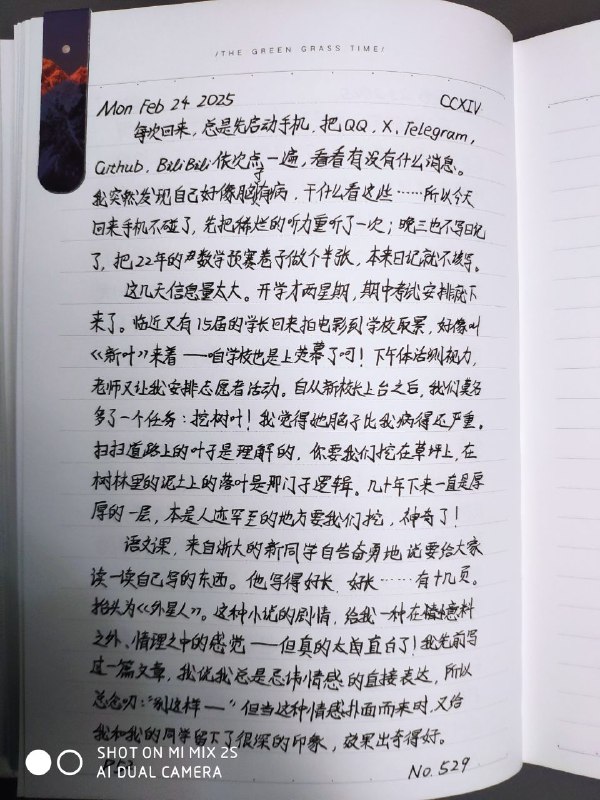 /THE GREEN GRASS TIME/
Mon Feb 24 2025 CCXIV
每次回来，总是先启动手机，把QQ，X，Telegram，
Github，BiliBili依次点一遍，看看有没有什么消息。
我突然发现自己好像脑子有病，干什么看这些……所以今天
回来手机不碰了，先把稀烂的听力重听了一次；晚三也不写日记
了，把22年的数学预赛卷子做个半张，本来日记就不该写。
这几天信息量太大。开学才两星期，期中考试安排就下
来了。临近又有15届的学长回来拍电影到学校取景，好像叫
《新叶》来着——咱学校也是上荧幕了啊！下午体活测视力，
老师又让我安排志愿者活动。自从新校长上台之后，我们莫名
多了一个任务：挖树叶！我觉得她脑子比我病得还严重。
扫扫道路上的叶子是理解的，你要我们挖在草坪上，在
树林里的泥土上的落叶是那门子逻辑。几十年下来一直是厚
厚的一层，本是人迹罕至的地方要我们挖，神奇了！
语文课，来自浙大的新同学自告奋勇地说要给大家
读一读自己写的东西。他写得好长，好长……有十几页。
抬头为《外星人》。这种小说的剧情，给我一种在意料
之外、情理之中的感觉——但真的太直白了！我先前写
过一篇文章，我说我总是忌讳情感的直接表达，所以
总念叨："别这样——"但当这种情感扑面而来时，又给
我和我的同学留下了很深的印象，效果出奇得好。
P.53 No. 529
SHOT ON MI MIX 2S
AI DUAL CAMERA